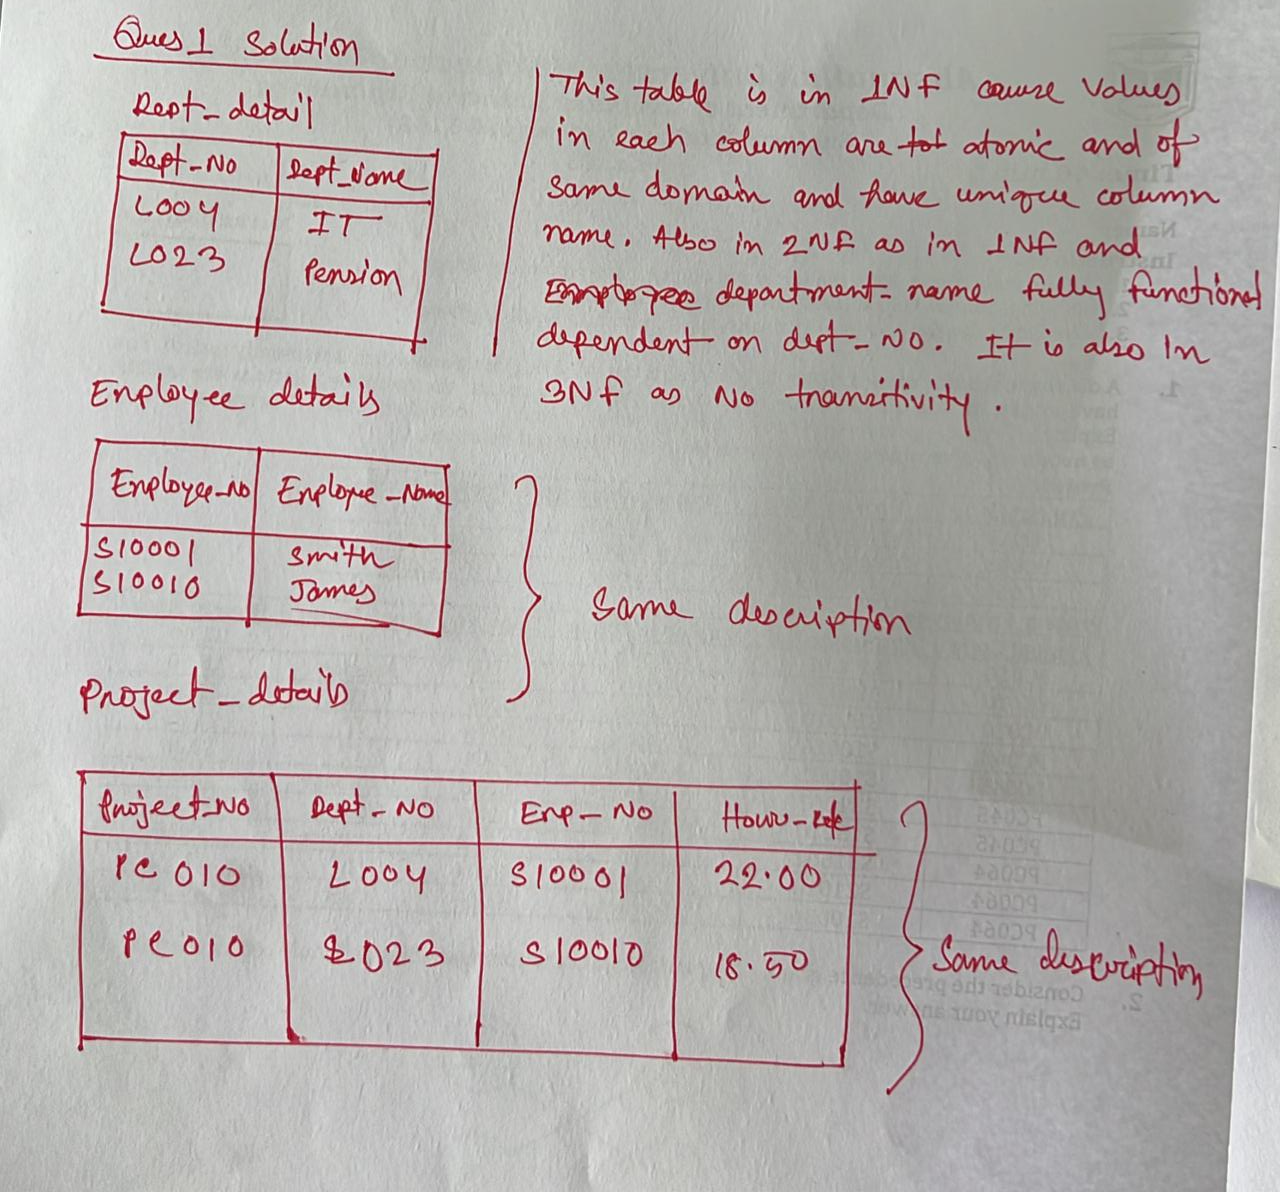 Ques 1 Solution
Dept_detail
Dept-No Dept_Name
L004 IT
L023 Pension
This table is in 1NF cause values
in each column are atomic and of
same domain and have unique column
name. Also in 2NF as in 1NF and
Employee department-name fully functional
dependent on dept-No. It is also in
3NF as No transitivity.
Employee details
Employee-No Employee-Name
S10001 Smith
S10010 James
Same description
Project_details
Project-No Dept-No Emp-No Hour-Rate
PC010 L004 S10001 22.00
PC010 L023 S10010 18.50
Same description
PC045
PC045
PC064
PC064
PC064
2. Consider the
Explain your answer
1.